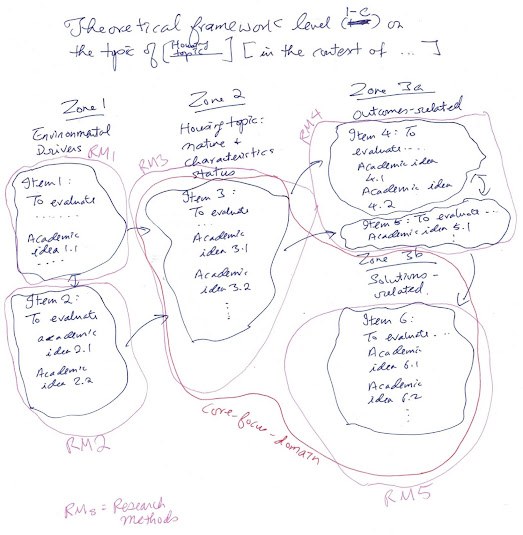 Theoretical framework level (1-C) on
the topic of [Housing topic] [in the context of ...]
Zone 1
Environmental
Drivers
RM1
Item 1:
To evaluate
......
Academic
idea 1.1
.....
Item 2:
To evaluate
academic
idea 2.1
Academic
idea 2.2
RM2
Zone 2
Housing topic:
nature &
characteristics
status
RM3
Item 3:
To evaluate
....
Academic
idea 3.1
Academic
idea 3.2
⋮
Zone 3a
Outcomes-related
RM4
Item 4: To
evaluate....
Academic idea
4.1
Academic idea
4.2
Item 5: To evaluate...
Academic idea 5.1
⋮
Zone 3b
Solutions-
related
Item 6:
To evaluate....
Academic
idea 6.1
Academic
idea 6.2
⋮
RM5
core-focus-domain
RMs = Research
methods